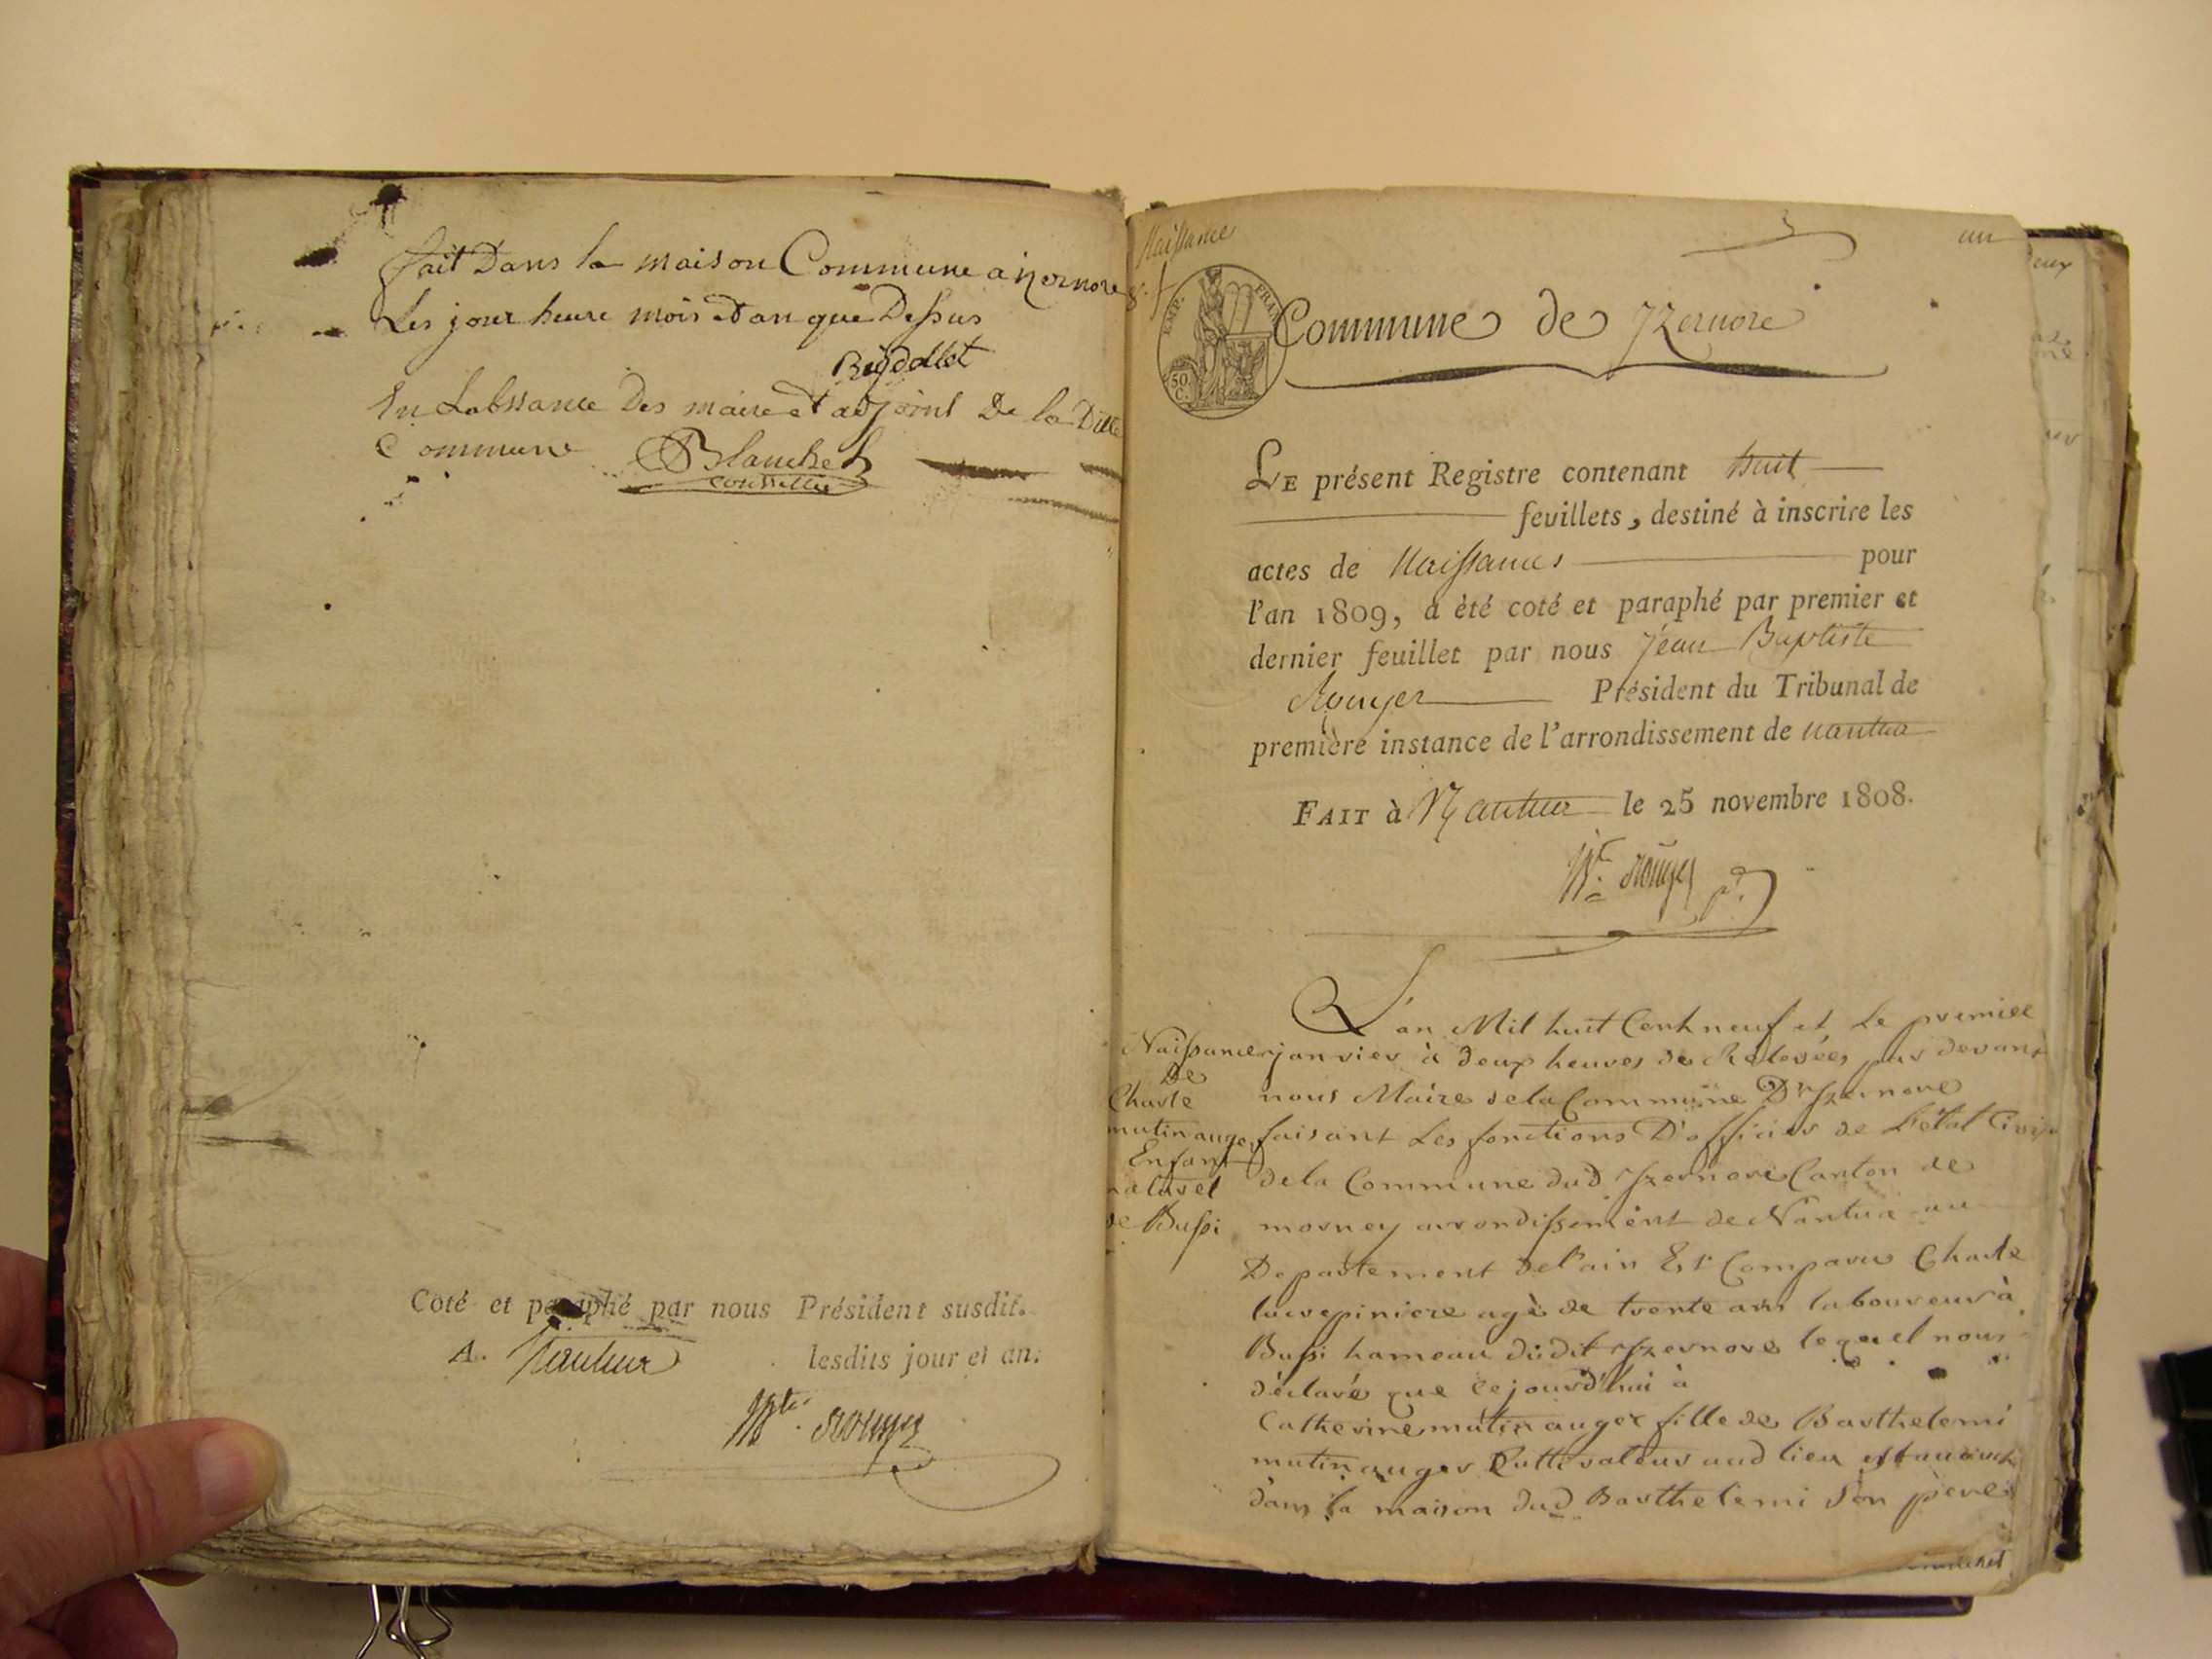 fait Dans la maison Commune a izernore
Les jour heure mois et an que Dessus
Reydellet
En Labssance Des maire et adjoint De la Ditte
Commune Blanchet
Conseiller
Coté et paraphé par nous Président susdit.
A. Nantua lesdits jour et an.
Bte. Rouyer
Naissance
un
EMP. FRAN
50 C.
Commune de Yzernore
LE présent Registre contenant huit
feuillets, destiné à inscrire les
actes de Naissances pour
l'an 1809, a été coté et paraphé par premier et
dernier feuillet par nous Jéan Baptiste
Rouyer Président du Tribunal de
première instance de l'arrondissement de nantua
FAIT à Nantua le 25 novembre 1808.
Bte. Rouyer pt.
Naissance
De
Charle
mutin auger
Enfant
naturel
de Bussi
L'an Mil huit Cent neuf et Le premier
janvier à deux heures de Relevées par devant
nous Maire de la Commune D'Yzernore
faisant Les fonctions D'officier de L'état Civil
de la Commune dud Yzernore Canton de
morney arrondissement de Nantua au
Departement de l'ain Est Comparu Charle
lacrepiniere agè de trente ans laboureur à
Bussi hameau dudit Yzernore lequel nous
déclaré que cejourd'hui à
Catherine mutin auger fille de Barthelemi
mutin auger Cultivateur aud lieu est
dans la maison dud Barthelemi son père